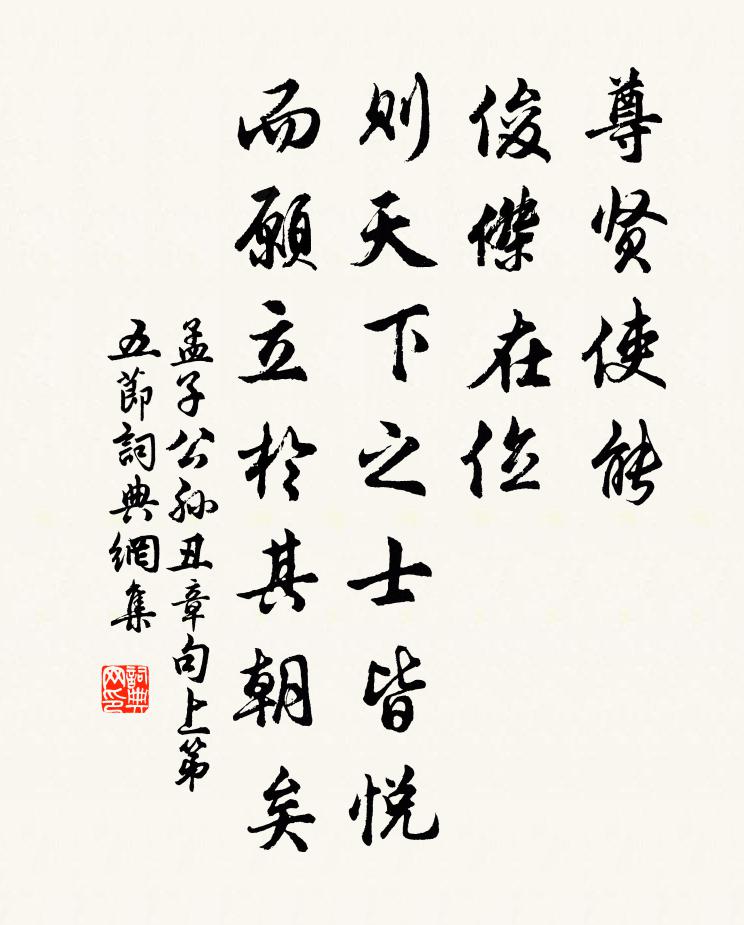 尊贤使能
俊傑在位
则天下之士皆悦
而願立於其朝矣
孟子公孙丑章句上第
五節詞典網集
詞典
网印